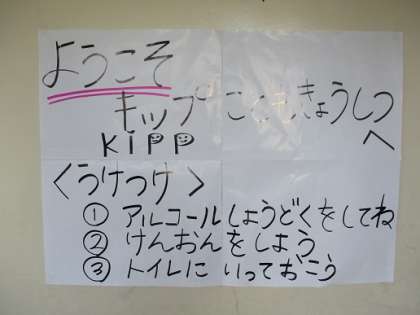 ようこそ
キップ こどもきょうしつ
KiPP へ
〈うけつけ〉
① アルコールしょうどくをしてね
② けんおんをしよう
③ トイレに いっておこう